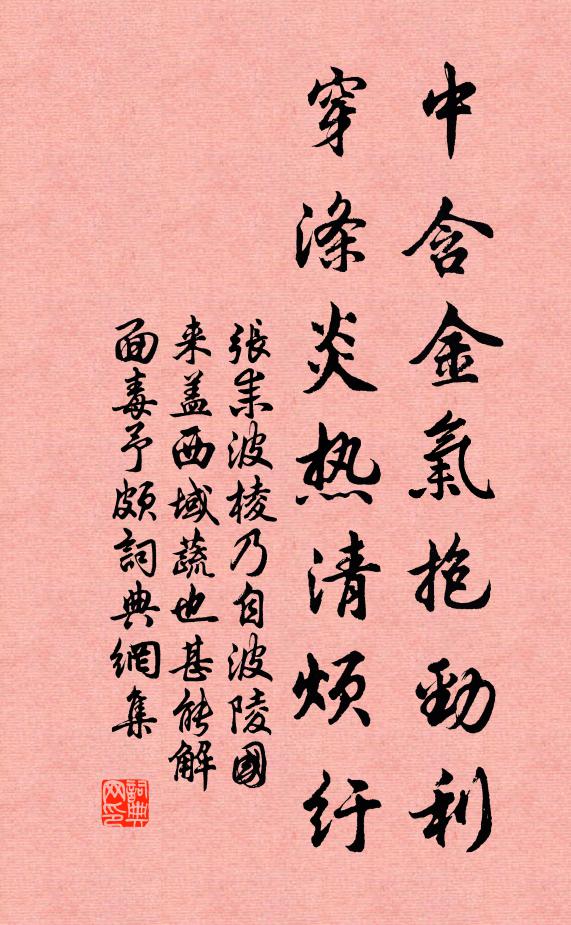 中含金氣抱勁利
穿滌炎热清烦纡
張耒波棱乃自波陵國
来盖西域蔬也甚能解
面毒予頗詞典網集
詞典
网印